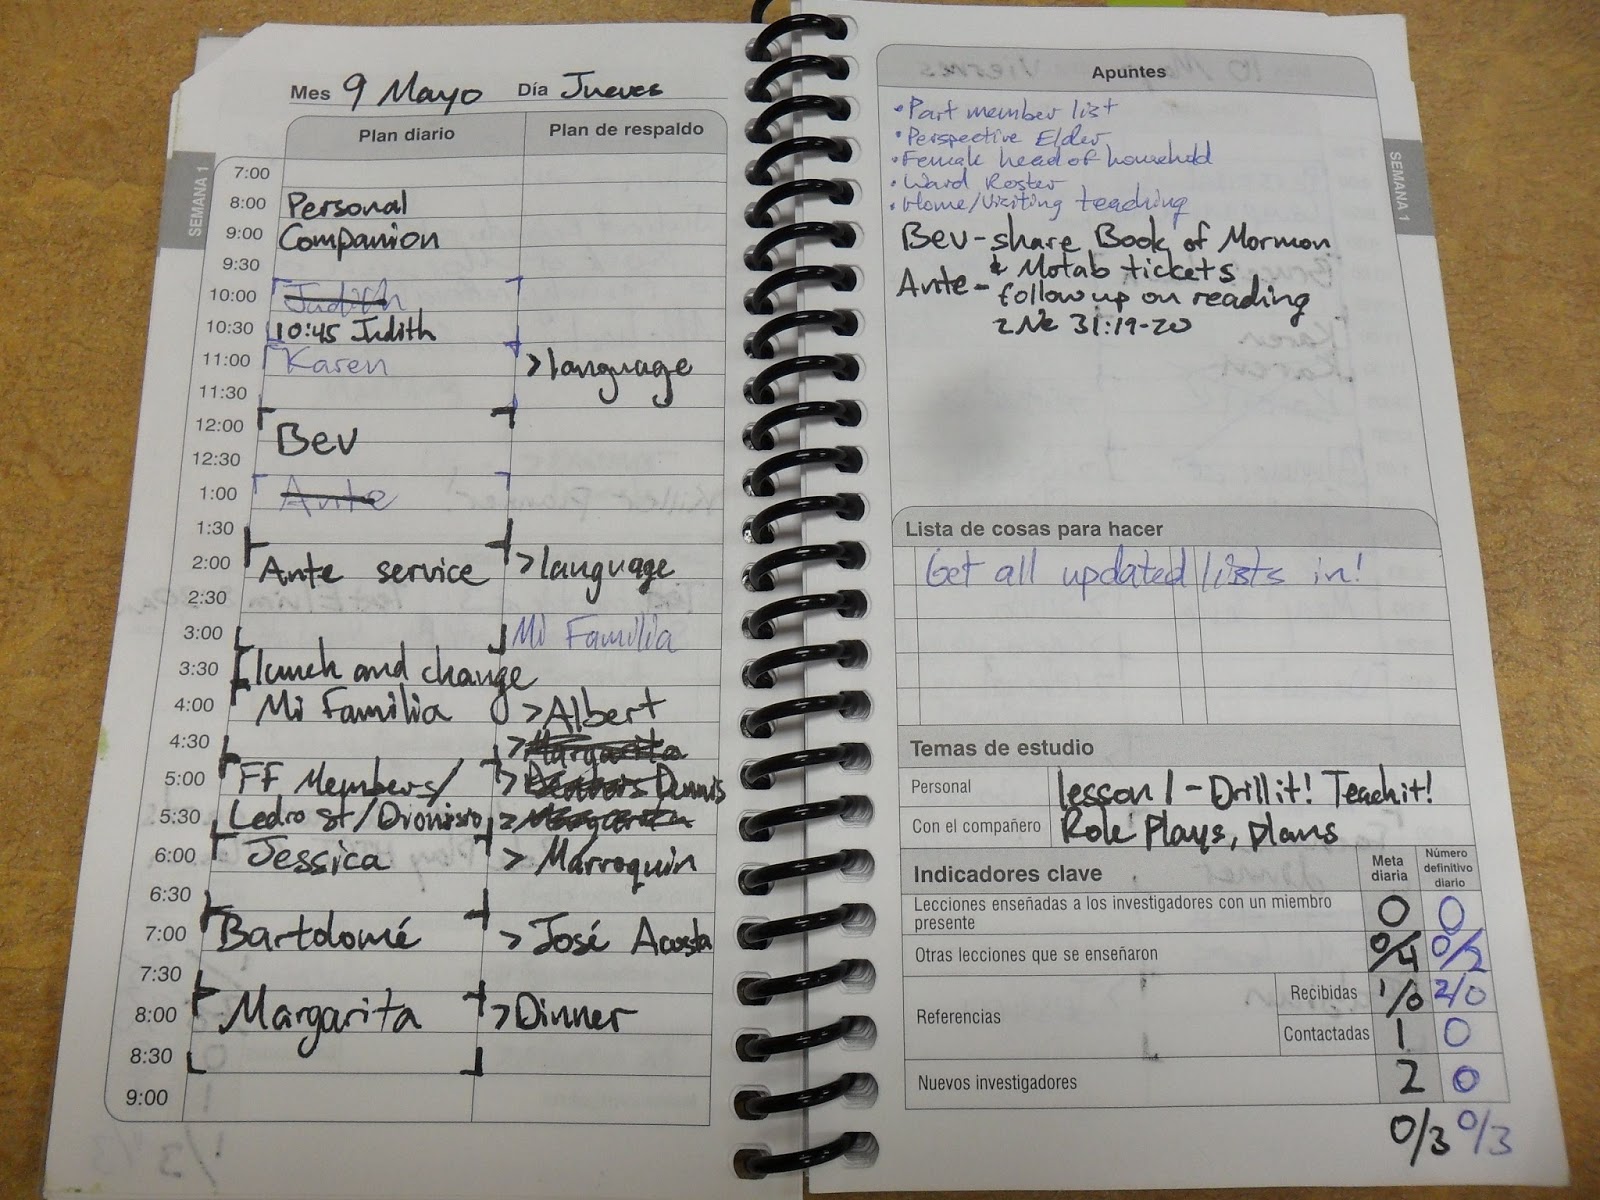 Mes 9 Mayo Día Jueves
Plan diario Plan de respaldo
SEMANA 1
7:00
8:00 Personal
9:00 Companion
9:30
10:00 Judith
10:30 10:45 Judith
11:00 Karen >language
11:30
12:00
12:30 Bev
1:00 Ante
1:30
2:00 Ante service >language
2:30
3:00 Mi Familia
3:30 lunch and change
4:00 Mi Familia >Albert
4:30 >Margarita
5:00 FF Members/ > Dennis
5:30 Ledro St/Dionisio > Margarita
6:00 Jessica > Marroquin
6:30
7:00 Bartolomé > José Acosta
7:30
8:00 Margarita >Dinner
8:30
9:00
Apuntes
• Part member list
• Perspective Elder
• Female head of household
• Ward Roster
• Home/Visiting teaching
Bev - share Book of Mormon
& Motab tickets
Ante - follow up on reading
2 Ne 31:19-20
SEMANA 1
Lista de cosas para hacer
Get all updated lists in!
Temas de estudio
Personal lesson 1 - Drill it! Teach it!
Con el compañero Role Plays, plans
Indicadores clave Meta diaria Número definitivo diario
Lecciones enseñadas a los investigadores con un miembro
presente 0 0
Otras lecciones que se enseñaron 0/4 0/2
Referencias Recibidas 1/0 2/0
Contactadas 1 0
Nuevos investigadores 2 0
0/3 0/3